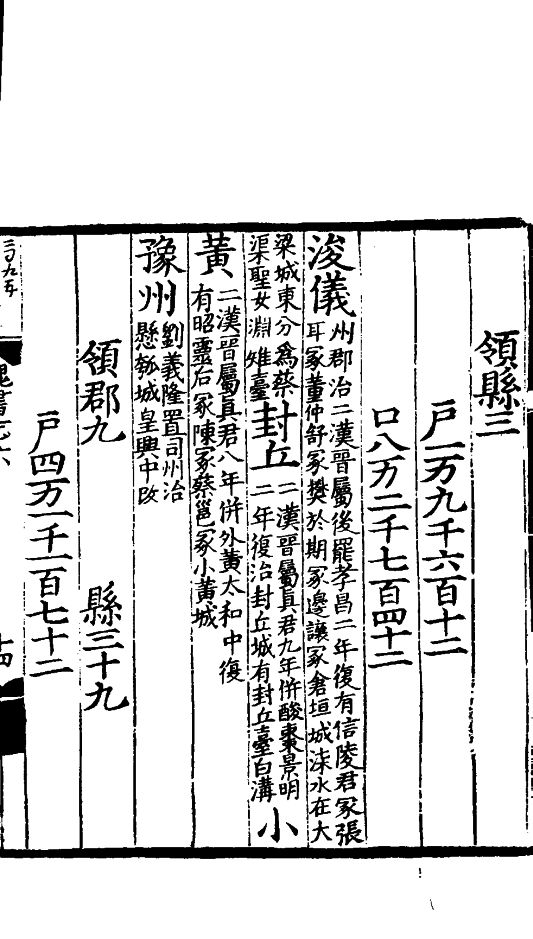 領縣三
戶一万九千六百十二
口八万二千七百四十二
浚儀 州郡治二漢晉屬後罷孝昌二年復有信陵君冢張
耳冢董仲舒冢樊於期冢邊讓冢倉垣城水在大
梁城東分為蔡
渠聖女淵雉臺
封丘 二漢晉屬真君九年併酸棗景明
二年復治封丘城有封丘臺白溝
小
黃 二漢晉屬真君八年併外黃太和中復
有昭靈后冢陳冢蔡邕冢小黃城
豫州 劉義隆置司州治
懸瓠城皇興中改
領郡九 縣三十九
戶四万一千一百七十二
魏書志六
十四